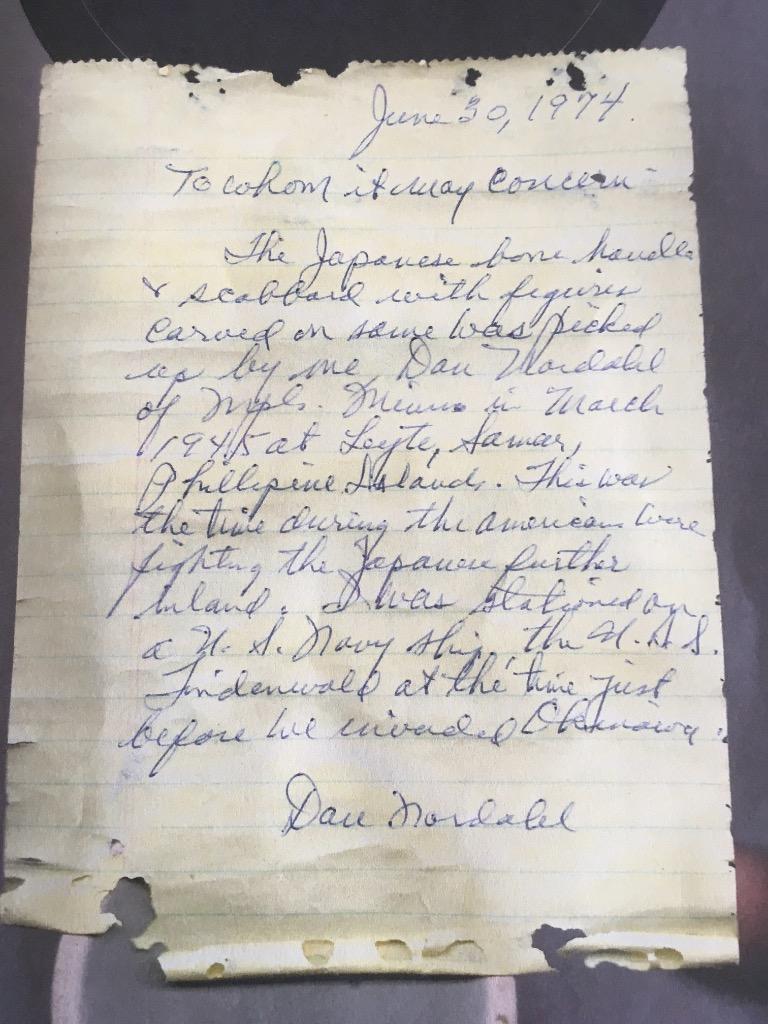 June 30, 1974.
To whom it may concern
The Japanese bone handle
& scabbard with figures
carved on same was picked
up by me, Dan Nordahl
of Mpls. Minn in March
1945 at Leyte, Samar,
Phillipine Islands. This was
the time during the americans were
fighting the Japanese further
inland. I was stationed on
a U.S. Navy ship, the U.S.S.
Lindenwald at the time just
before we invaded Okinawa.
Dan Nordahl